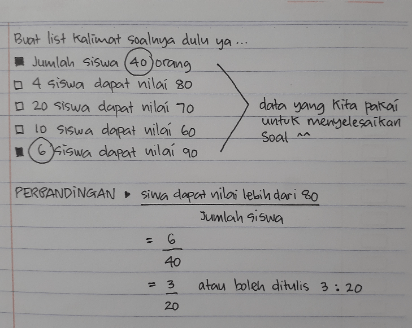 Buat list kalimat soalnya dulu ya...
■ Jumlah siswa 40 orang
□ 4 siswa dapat nilai 80
□ 20 siswa dapat nilai 70
□ 10 siswa dapat nilai 60
■ 6 siswa dapat nilai 90
data yang kita pakai
untuk menyelesaikan
soal ^^
PERBANDINGAN ▸ siwa dapat nilai lebih dari 80
Jumlah siswa
= 6
40
= 3 atau boleh ditulis 3 : 20
20